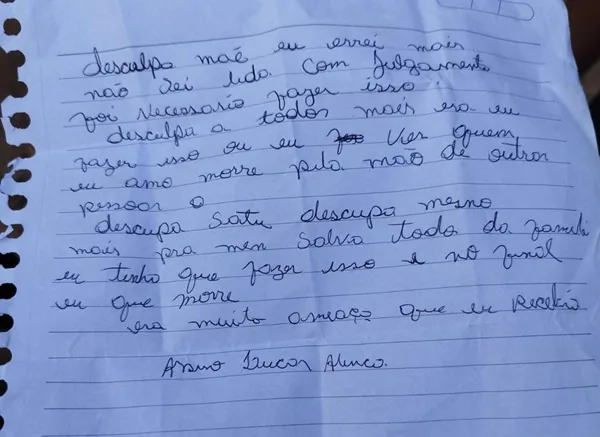 desculpa mãe eu errei mais
não sei lida com julgamento
foi necessario fazer isso.
desculpa a todos mais era eu
fazer isso ou eu ver quem
eu amo morre pela mão de outras
pessoas
descupa satu descupa mesmo
mais pra men salva todo da famili
eu tenho que fazer isso e no funal
eu que morre
era muito ameaça que eu recebia
Lucas